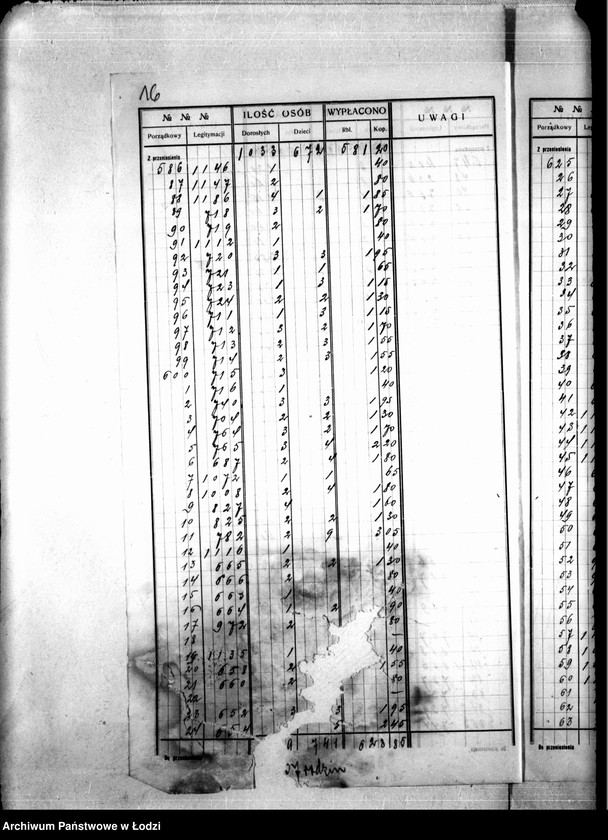 16
№ № № ILOŚĆ OSÓB WYPŁACONO UWAGI
Porządkowy Legitymacji Dorosłych Dzieci Rbl. Kop.
Z przeniesienia 1033 672 581 20
586 1146 1 40
87 1147 2 80
88 1186 4 1 1 85
89 718 3 2 1 70
90 719 2 80
91 1112 1 40
92 720 3 3 1 95
93 721 1 1 65
94 723 1 3 1 15
95 724 2 2 1 30
96 711 1 3 1 15
97 712 3 2 1 70
98 713 2 3 1 55
99 714 2 3 1 55
600 715 3 1 20
1 716 1 40
2 740 3 3 1 95
3 704 2 2 1 30
4 764 3 2 1 70
5 765 3 4 2 20
6 767 2 4 1 80
7 1072 1 1 65
8 1008 2 4 1 80
9 827 4 1 60
10 825 2 2 1 30
11 782 2 9 3 05
12 1116 1 40
13 665 2 2 1 30
14 666 2 80
15 663 1 40
16 664 1 2 90
17 972 2 80
18 —
19 1135 1 40
20 658 2 1 55
21 660 2 80
22 —
23 652 3 3 1 95
24 654 5 2 45
Do przeniesienia 9 741 623 85
37 rodzin
№ №
Porządkowy
Z przeniesienia
625
26
27
28
29
30
31
32
33
34
35
36
37
38
39
40
41
42
43
44
45
46
47
48
49
50
51
52
53
54
55
56
57
58
59
60
61
62
63
Do przeniesienia
Archiwum Państwowe w Łodzi